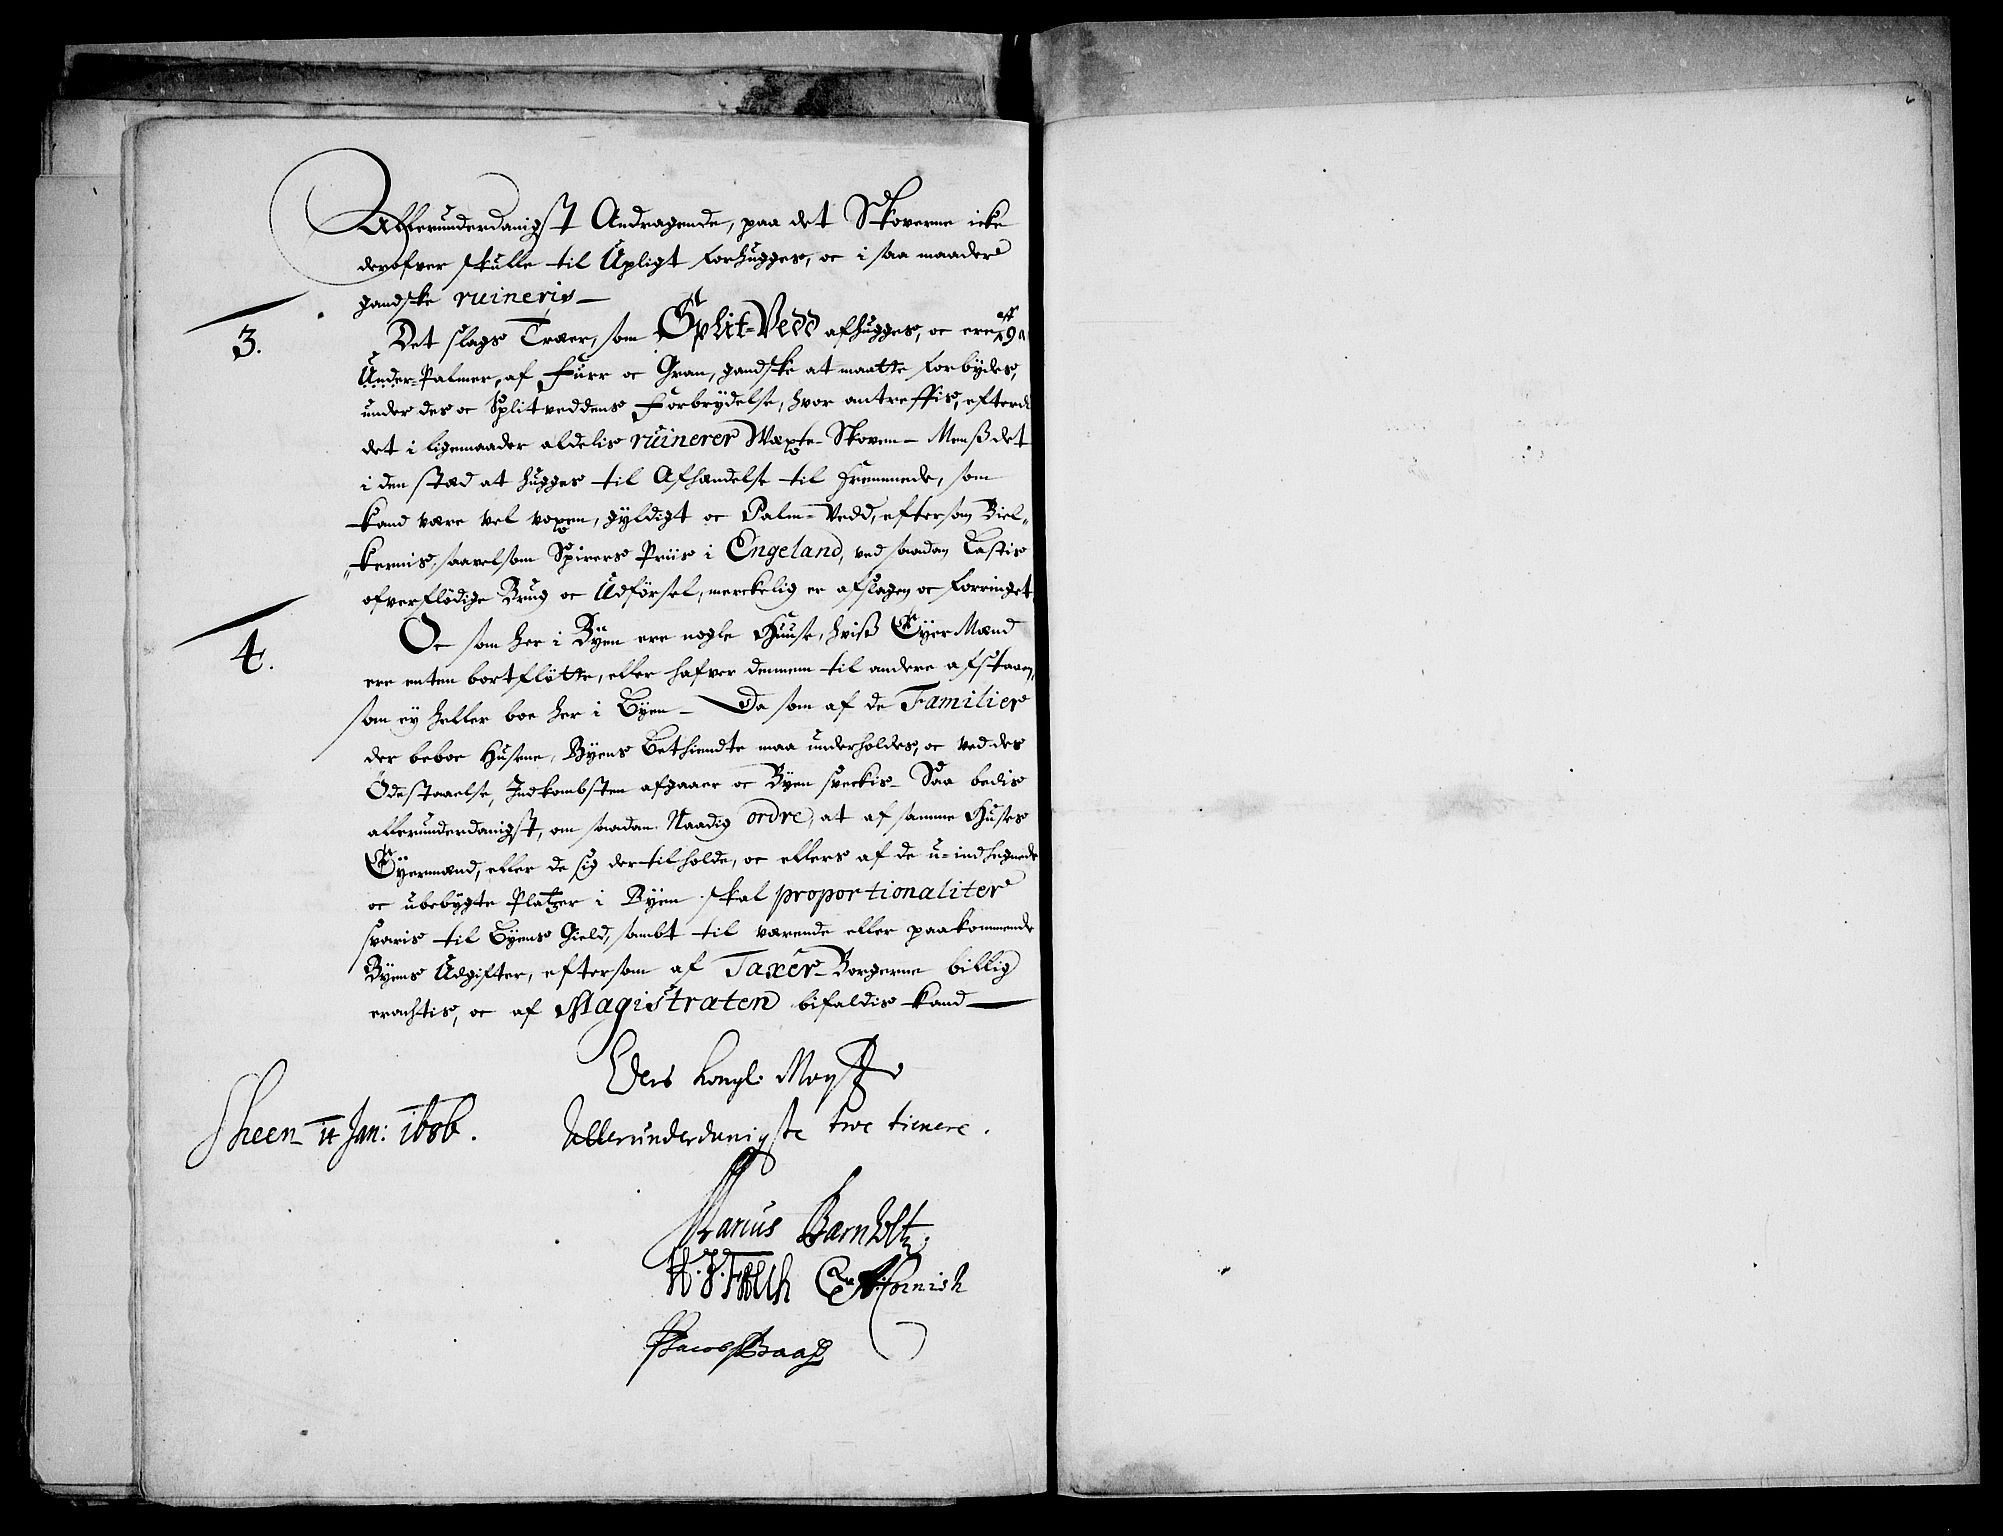 Allerunderdanigst Andragende, paa det Skoverne icke
derofver skulle til Upligt forhugges, oc i saa maader
gandske ruineris –
3.
Det slags Træer, som Split-Vedd afhugges, oc ere aff
Under-Palmer, af Furr oc Gran, gandske at maatte forbydes,
under des oc Splitveddens Forbrydelse, hvor antreffis, efterdi
det i ligemaader aldelis ruinerer Wæxte-Skoven – Menß det
i den stæd at hugges til Afhændelse til fremmede, som
kand være vel voxen, gyldigt oc Palm-Vedd, eftersom Biel-
kernis, saavelsom Spirers Priis i Engeland, ved saadan Lastis
ofverflödige Brug oc Udförsel, merckelig er afslagen oc forringet.
4.
Oc som her i Byen ere nogle Huuse, hviß Eyer Mænd
ere enten bortflötte, eller hafver dennem til andre afstaaen,
som ey heller boe her i Byen – Da som af de Familier
der beboe Husene, Byens Bethiendte maa underholdes, oc ved des
Ödestaaelse, Indkombsten afgaaer oc Byen sveckis – Saa bedis
allerunderdanigst, om saadan Naadig ordre, at af samme Huses
Eyermænd, eller de sig dertil holde, oc ellers af de u-indhegnede
oc ubebygte Platzer i Byen skal proportionaliter
svaris til Byens Gield, sambt til værende eller paakommende
Byens Udgifter, eftersom af Taxer-Borgerne billig
erachtis, oc af Magistraten bifaldis kand –
Eders Kongl: Mayst
Sheen 11 Jan: 1686.
Allerunderdanigste troe tienere.
Marius Barnholt
H. J. Falch C. A. Cornish
Jacob Baas